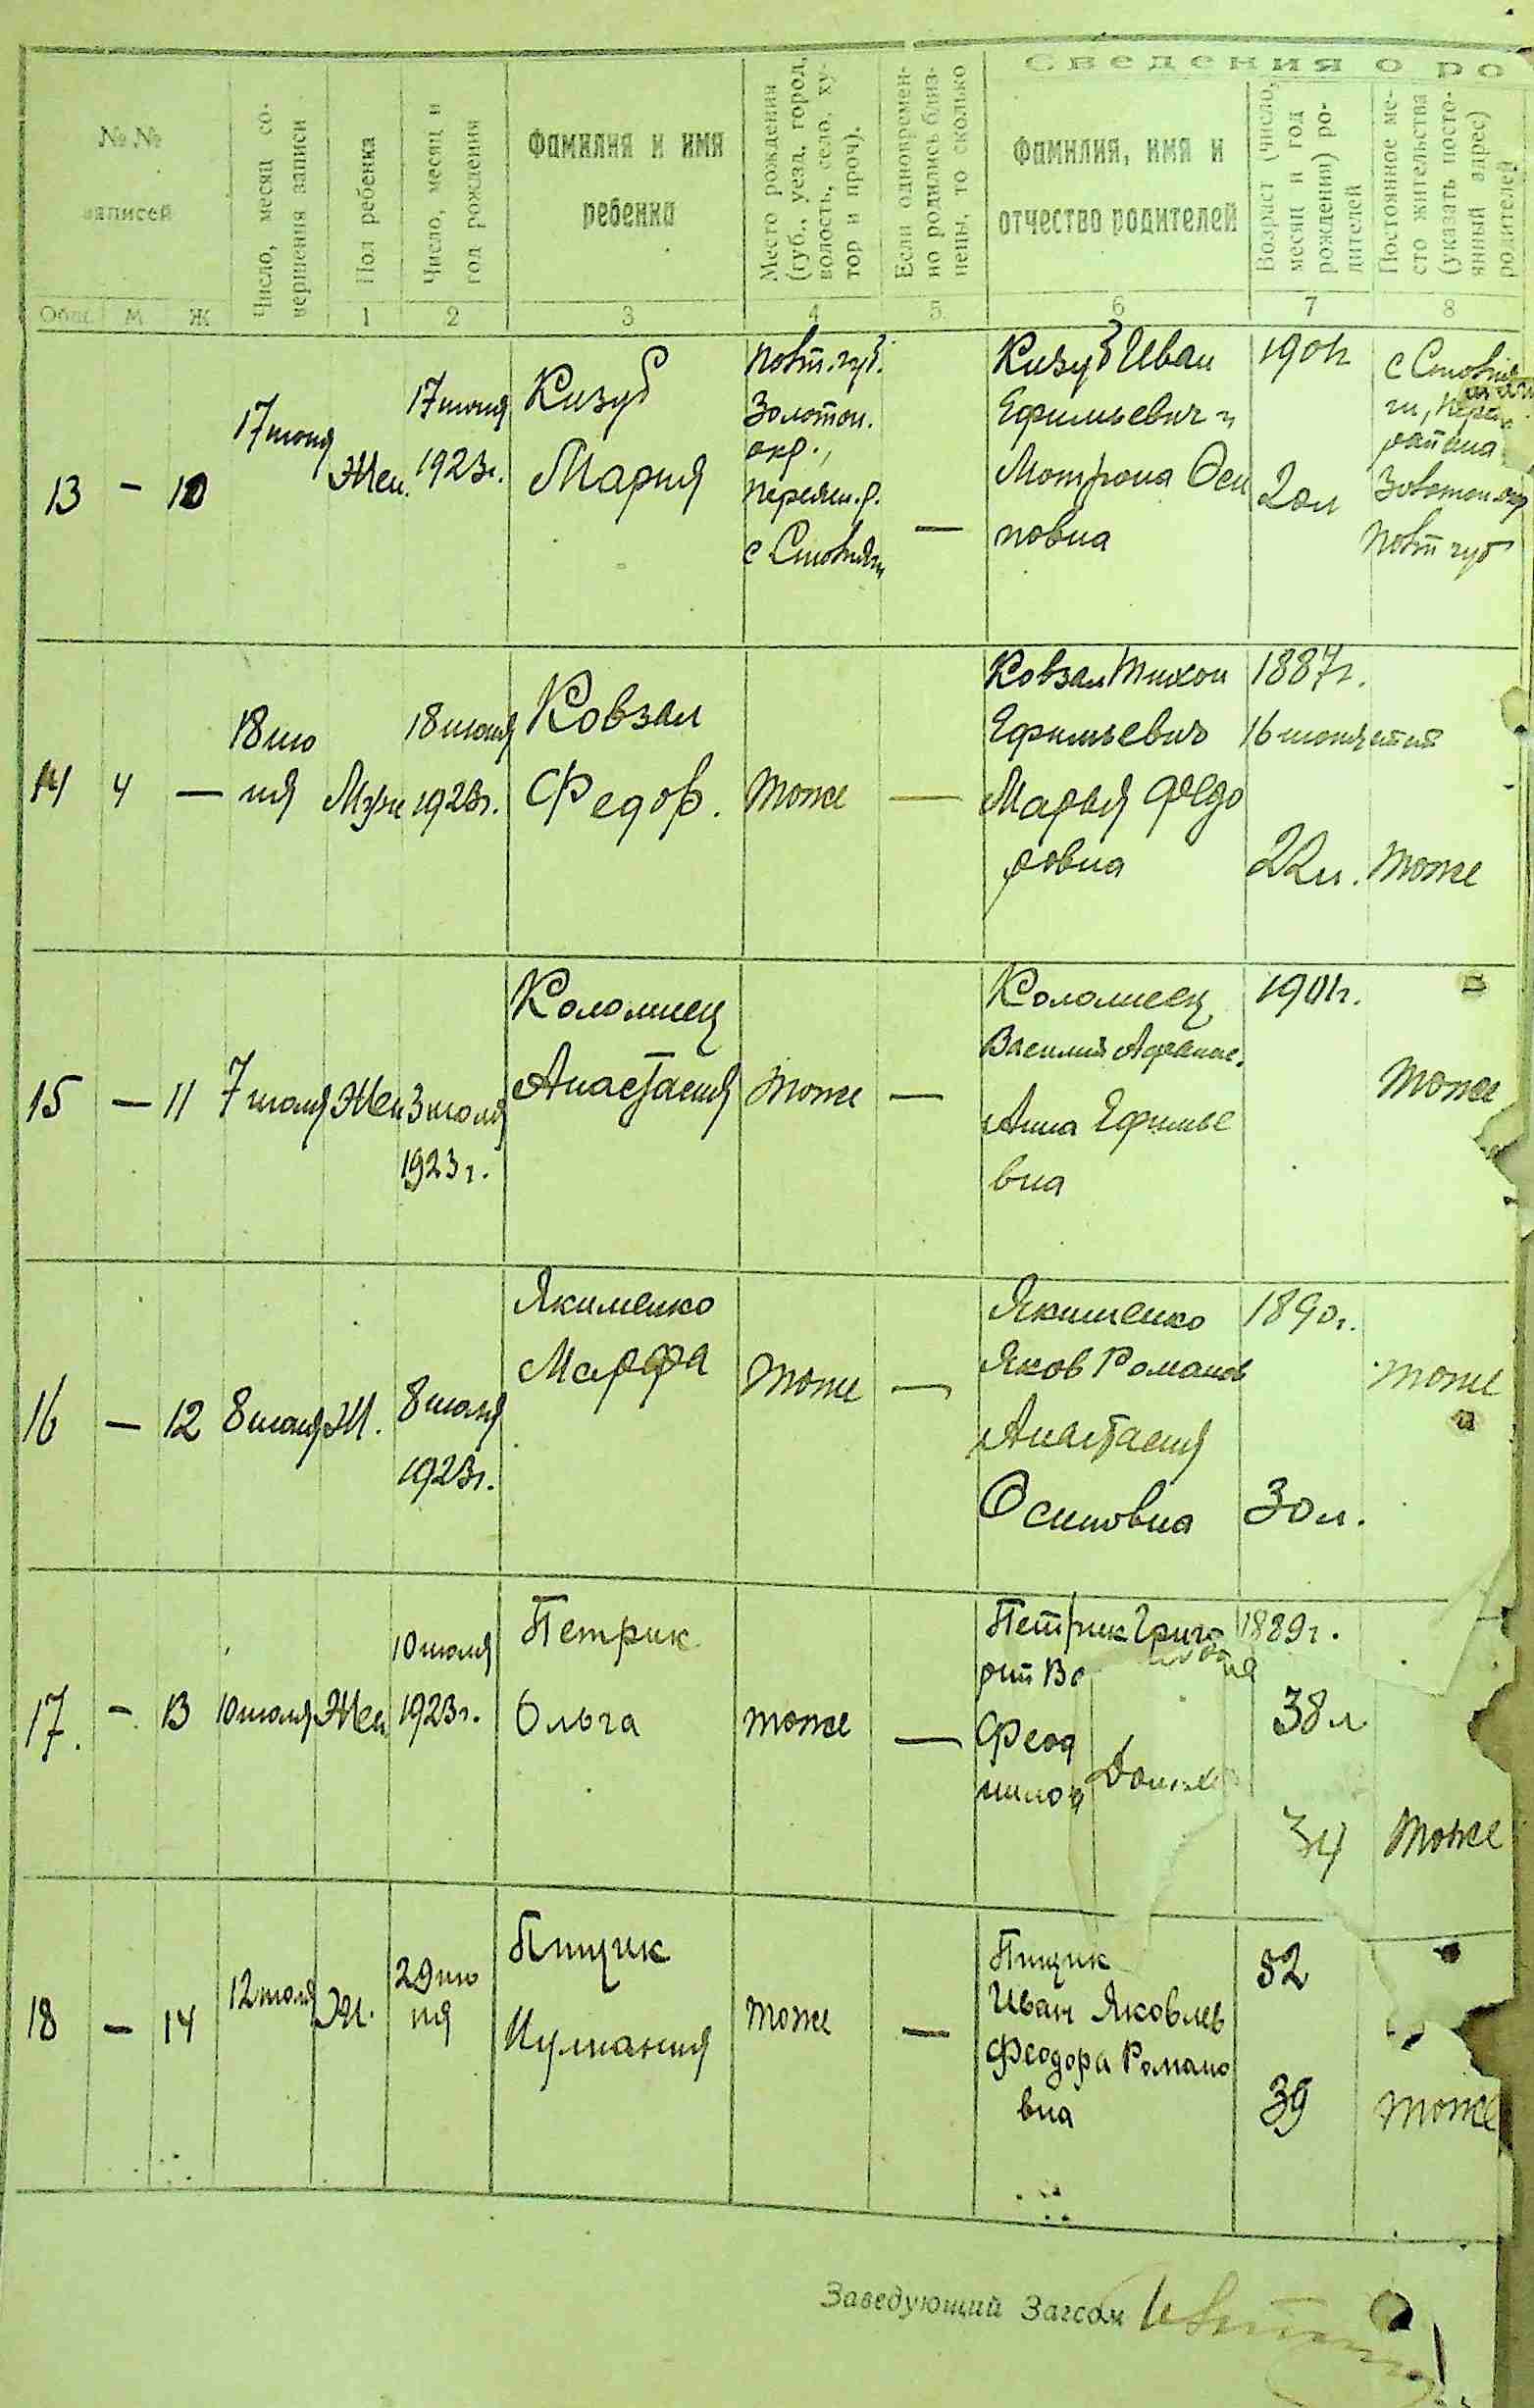 Сведения о ро
№ №
записей
Число, месяц со-
вершения записи
Пол ребенка
Число, месяц и
год рождения
Фамилия и имя
ребенка
Место рождения
(губ., уезд, город,
волость, село, ху-
тор и проч).
Если одновремен-
но родились близ-
нецы, то сколько
Фамилия, имя и
отчество родителей
Возраст (число,
месяц и год
рождения) ро-
дителей
Постоянное ме-
сто жительства
(указать посто-
янный адрес)
родителей
Общ. М Ж 1 2 3 4 5 6 7 8
13 — 10
17 июня
Жен.
17 июня
1923г.
Кизуб
Мария
Полт. губ.
Золотон.
окр.,
Переясл. р.
с Стовпяги
—
Кизуб Иван
Ефимьевич и
Мотрона Оси
повна
1901г
20л
с Стовпя
ги,
района
Золотон. окр
Полт губ
14 4 —
18 ию
ня
Муж
18 июня
1923г.
Ковзал
Федор.
тоже
—
Ковзал Тихон
Ефимьевич
Мария Федо
ровна
1887г.
16 июня
22л.
тоже
15 — 11
7 июля
Жен
3 июля
1923г.
Коломиец
Анастасия
тоже
—
Коломиец
Василий Афанас.
Анна Ефимье
вна
1901г.
тоже
16 — 12
8 июля
Ж.
8 июля
1923г.
Якименко
Марфа
тоже
—
Якименко
Яков Романов
Анастасия
Осиповна
1890г.
30л.
тоже
17. — 13
10 июля
Жен
10 июля
1923г.
Петрик
Ольга
тоже
—
Петрик Григо
рий
Феод
1889г.
38л
34
тоже
18 — 14
12 июля
Ж.
29 ию
ня
Пицик
Иулиания
тоже
—
Пицик
Иван Яковлев
Феодора Романо
вна
52
39
тоже
Заведующий Загсом